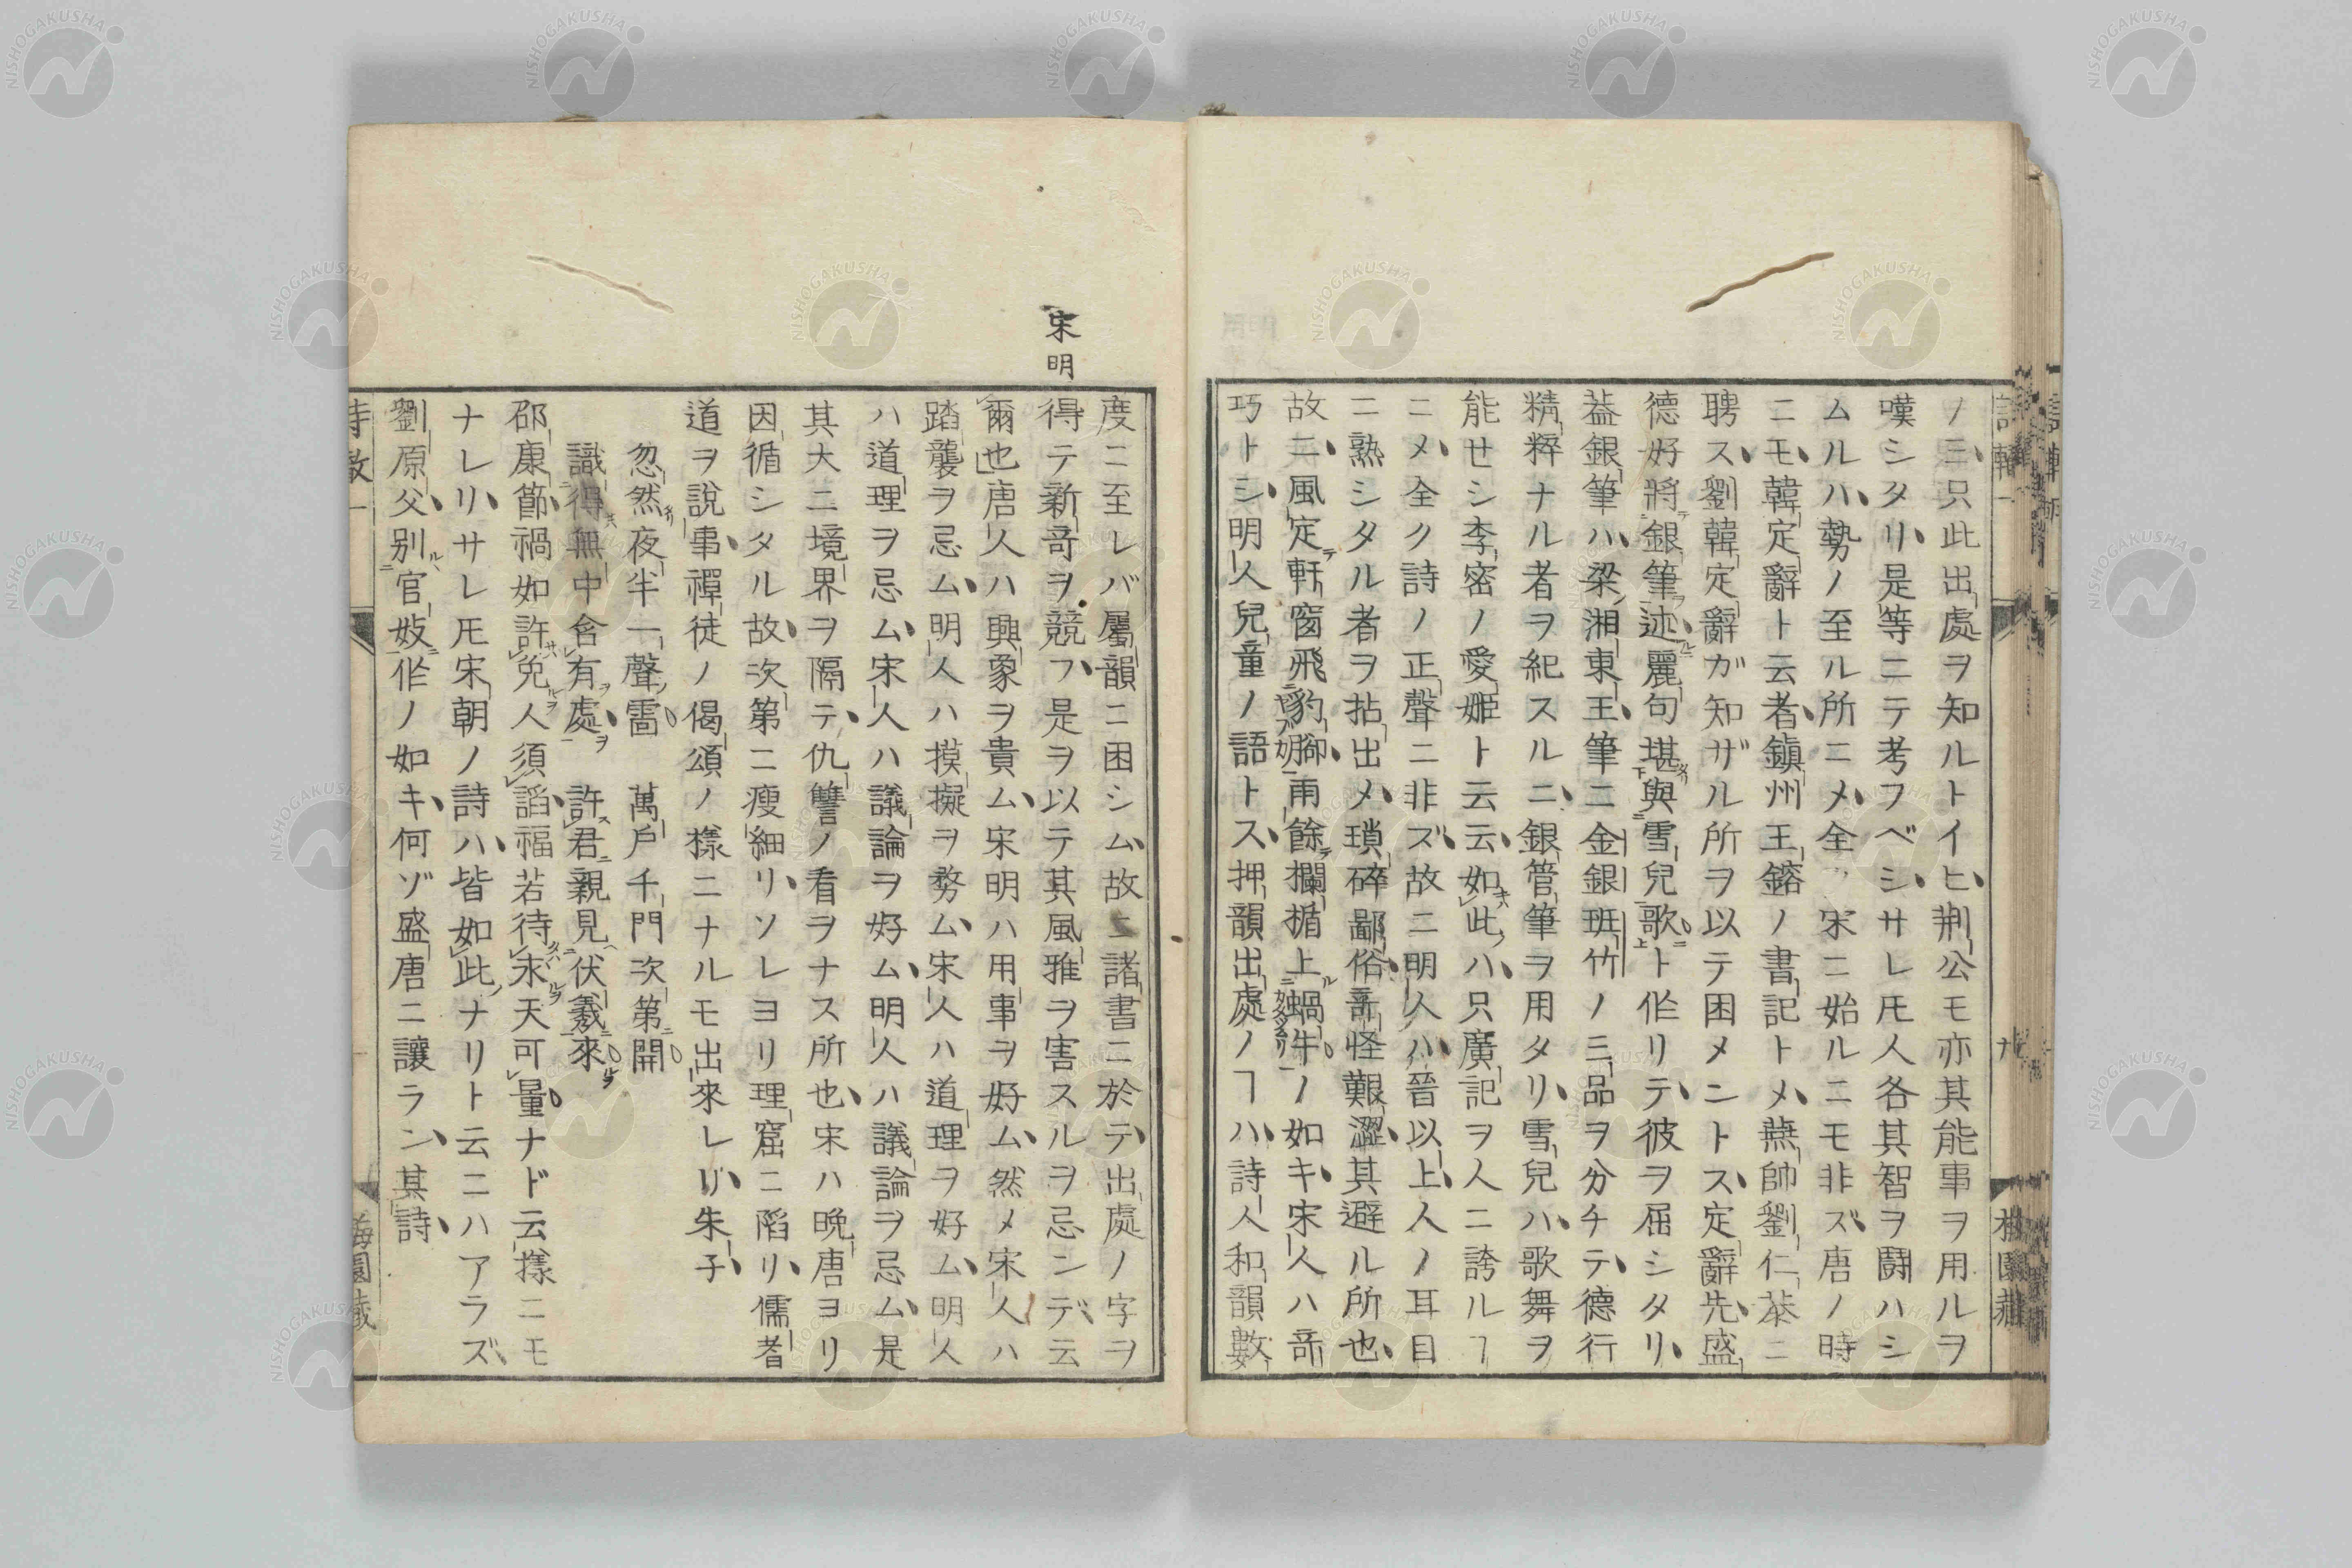 ノミ只此出處ヲ知ルトイヒ荆公モ亦其能事ヲ用ルヲ
嘆シタリ是等ニテ考フベシサレ𪜈人各其智ヲ鬪ハシ
ムルハ勢ノ至ル所ニメ全ク宋ニ始ルニモ非ズ唐ノ時
ニモ韓定辭ト云者鎭州王鎔ノ書記トメ燕帥劉仁恭ニ
聘ス劉韓定辭ガ知ザル所ヲ以テ困メントス定辭先盛
德好將銀筆述麗句堪與雪兒歌ト作リテ彼ヲ屈シタリ
葢銀筆ハ梁湘東王筆ニ金銀班竹ノ三品ヲ分チテ德行
精粹ナル者ヲ紀スルニ銀管筆ヲ用タリ雪兒ハ歌舞ヲ
能セシ李密ノ愛姬ト云云如此ハ只廣記ヲ人ニ誇ルヿ
ニメ全ク詩ノ正聲ニ非ズ故ニ明人ハ晉以上人ノ耳目
ニ熟シタル者ヲ拈出メ瑣碎鄙俗竒怪艱澀其避ル所也
故ニ風定軒窗飛豹脚雨餘欄楯上蝸牛ノ如キ宋人ハ竒
巧トシ明人兒童ノ語トス押韻出處ノヿハ詩人和韻數
宋明
度ニ至レバ屬韻ニ困シム故ニ諸書ニ於テ出處ノ字ヲ
得テ新竒ヲ競フ是ヲ以テ其風雅ヲ害スルヲ忌ンデ云
爾也唐人ハ興象ヲ貴ム宋明ハ用事ヲ好ム然メ宋人ハ
踏襲ヲ忌ム明人ハ摸擬ヲ務ム宋人ハ道理ヲ好ム明人
ハ道理ヲ忌ム宋人ハ議論ヲ好ム明人ハ議論ヲ忌ム是
其大ニ境界ヲ隔テ仇讐ノ看ヲナス所也宋ハ晩唐ヨリ
因循シタル故次第ニ瘦細リソレヨリ理窟ニ陷リ儒者
道ヲ說事禪徒ノ偈頌ノ樣ニナルモ出來レリ朱子
忽然夜半一聲雷 萬戶千門次第開
識得無中含有處 許君親見伏羲來
邵康節禍如許免人須謟福若待求天可量ナド云樣ニモ
ナレリサレ𪜈宋朝ノ詩ハ皆如此ナリト云ニハアラズ
劉原父別官妓作ノ如キ何ゾ盛唐ニ讓ラン其詩